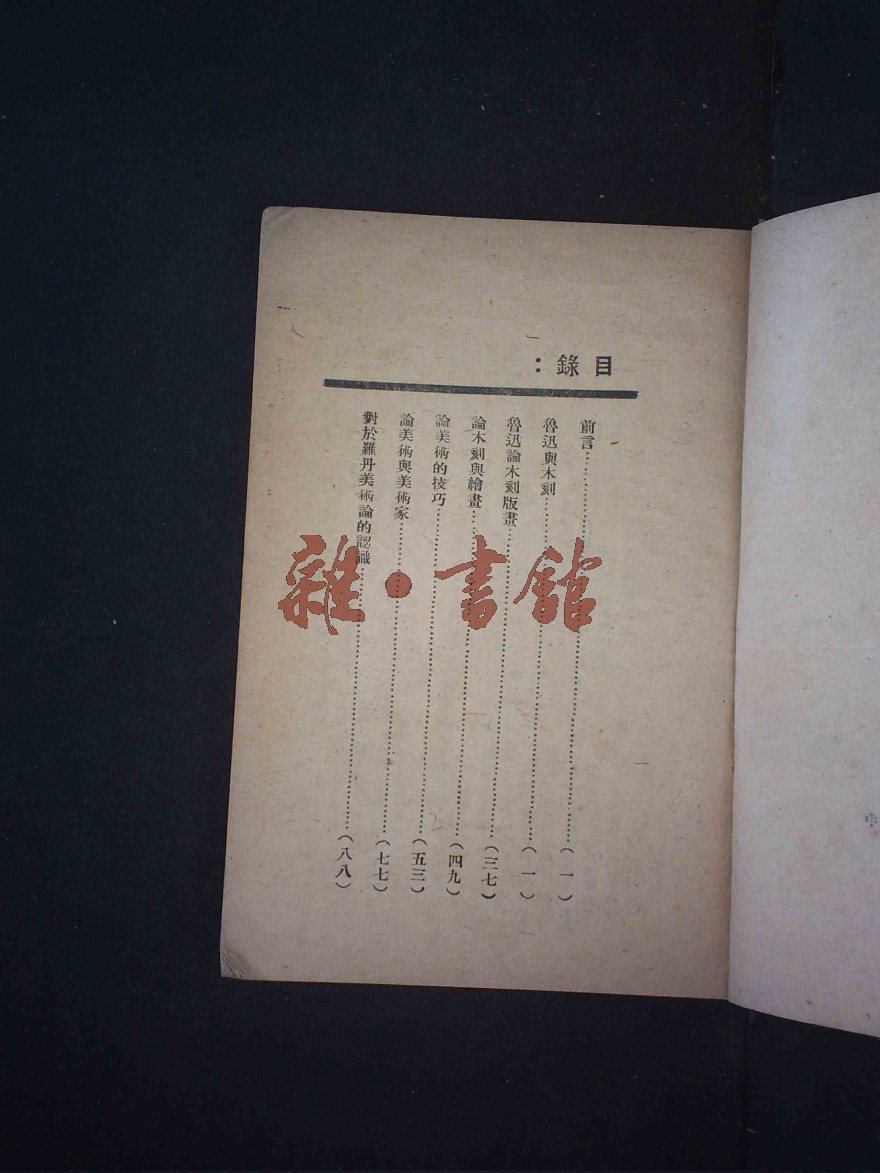 目錄：
前言……………………（一）
魯迅與木刻……………………（一）
魯迅論木刻版畫……………………（三七）
論木刻與繪畫……………………（四九）
論美術的技巧……………………（五三）
論美術與美術家……………………（七七）
對於羅丹美術論的認識……………………（八八）
雜·書館
中